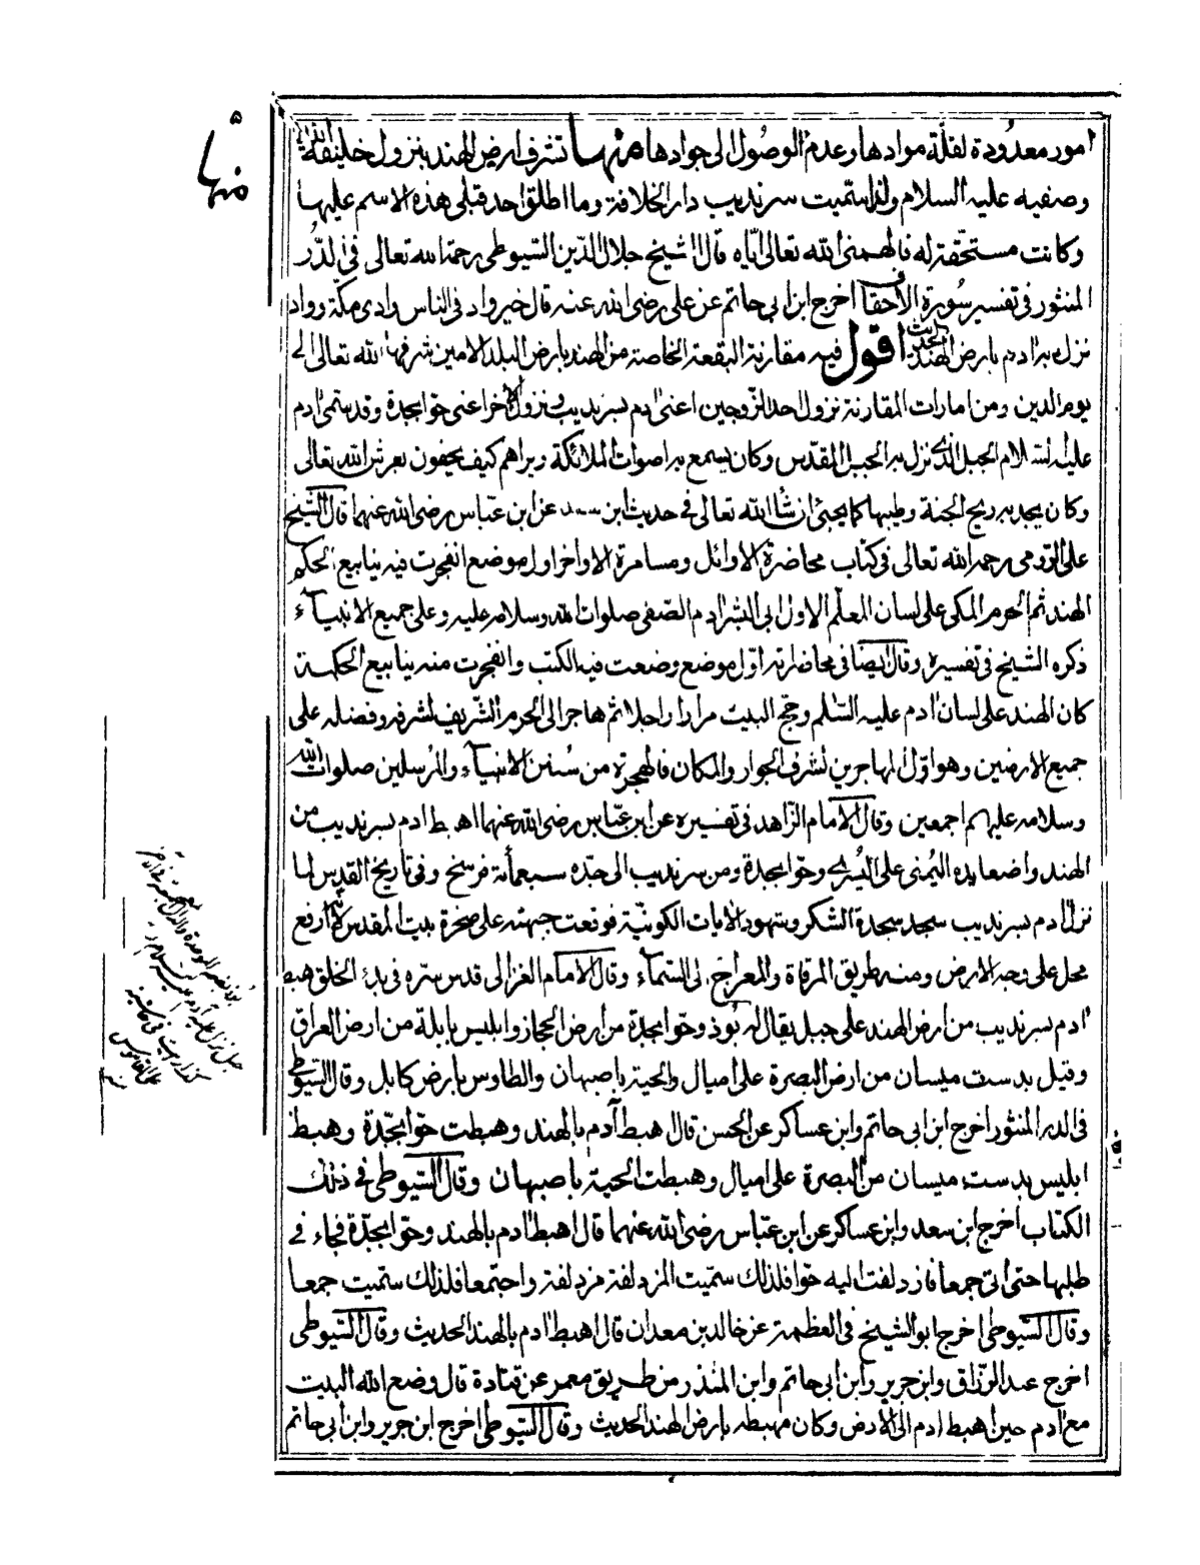 منها
امور معدودة لقلّة موادها وعدم الوصول الى جوادها منها تشرف ارض الهند بنزول خليفة الله
وصفيه عليه السلام ولذا سمّيت سرنديب دار الخلافة وما اطلق احد قبلي هذه الاسم عليها
وكانت مستحقة له فالهمنى الله تعالى ايّاه قال الشيخ جلال الدّين السّيوطى رحمة الله تعالى في الدّر
المنثور في تفسير سُورة الأحقاف اخرج ابن ابى حاتم عن على رضى الله عنه قال خير واد فى الناس وادى مكة وواد
نزل به ادم بارض الهند الحديث اقول فيه مقارنة البقعة الخاصة من الهند بارض البلد الامين شرفها الله تعالى الى
يوم الدين ومن امارات المقارنة نزول احد الزّوجين اعنى ادم بسرنديب ونزول الأخر اعنى حوا بجدة وقد سمى ادم
عليه السّلام الجبل الذى نزل به الجبل المقدّس وكان يسمع به اصوات الملائكة ويراهم كيف يحفون بعرش الله تعالى
وكان يجد به ريح الجنة وطيبها كما يجئ ان شا الله تعالى في حديث ابن سعد عن ابن عبّاس رضى الله عنهما قال الشيخ
على الرّومى رحمه الله تعالى فى كتاب محاضرة الاوائل ومسامرة الاواخر اول موضع انفجرت فيه ينابيع الحكم
الهند ثم الحرم المكى على لسان المعلّم الاول ابى البشر ادم الصّفى صلوات الله وسلامه عليه وعلى جميع الانبيآء
ذكره الشيخ فى تفسيره وقال ايضا فى محاضرته اوّل موضع وضعت فيه الكتب وانفجرت منه ينابيع الحكمة
كان الهند على لسان ادم عليه السّلم وحج البيت مرارا راجلا ثم هاجر الى الحرم الشّريف لشرفه وفضله على
جميع الارضين وهو اوّل المهاجرين لشرف الجوار والمكان فالهجرة من سُنن الانبيآء والمرسلين صلوات الله
وسلامه عليهم اجمعين وقال الامام الزّاهد فى تفسيره عن ابن عبّاس رضى الله عنهما اهبط ادم بسرنديب من
الهند واضعا يده اليُمنى على اليُسرى وحوّا بجدة ومن سرنديب الى جدّه سبعمأئة فرسخ وفى تاريخ القدس لما
نزل ادم بسرنديب سجد سجدة الشكر وشهود الايات الكونيّة فوقعت جبهته على صخرة بيت المقدس لانها ارفع
محل على وجه الارض ومنه طريق المرقاة والمعراج الى السّمآء وقال الامام الغزالى قدس سرّه فى بدء الخلق هبط
ادم بسرنديب من ارض الهند على جبل يقال له بُوذ وحوّا بجدة من ارض الحجاز وابليس بابلة من ارض العراق
وقيل بدست ميسان من ارض البصرة على اميال والحية باصبهان والطاوس بارض كابل وقال السّيوطى
فى الدر المنثور اخرج ابن ابى حاتم وابن عساكر عن الحسن قال اهبط آدم بالهند وهبطت حوّا بجدّة وهبط
ابليس بدست ميسان من البصرة على اميال وهبطت الحية باصبهان وقال السّيوطى فى ذلك
الكتاب اخرج ابن سعد وابن عساكر عن ابن عبّاس رضى الله عنهما قال اهبط ادم بالهند وحوّا بجدّة فجاء فى
طلبها حتى اتى جمعا فازدلفت اليه حوّا فلذلك سمّيت المزدلفة مزدلفة واجتمعا فلذلك سمّيت جمعا
وقال السّيوطى اخرج ابو الشيخ فى العظمة عن خالد بن معدان قال اهبط ادم بالهند الحديث وقال السّيوطى
اخرج عبد الرّزاق وابن جرير وابن ابى حاتم وابن المنذر من طريق معمر عن قتادة قال وضع الله البيت
مع ادم حين اهبط ادم الى الارض وكان مهبطه بارض الهند الحديث وقال السّيوطى اخرج ابن جرير وابن ابى حاتم